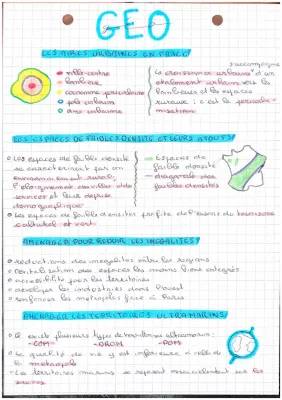 GEO
LES AIRES URBAINES EN FRANCE
ville-centre
banlieue
couronne périurbaine
pôle urbain
aire urbaine
s'accompagne
La croissance urbaine d'un
étalement urbain vers les
banlieues et les espaces
ruraux : c'est la périurba-
nisation
LES ESPACES DE FAIBLE DENSITE ET LEURS ATOUTS
Les espaces de faible densité
se caractérisent par un
environnement rural,
l'éloignement des villes et des
services et leur déprise
démographique
Espaces de
faible densité
diagonale des
faibles densités
Les espaces de faibles densités profite de l'essor du tourisme
culturel et vert
AMENAGER POUR REDUIR LES INEGALITES
réductions des inégalités entre les régions
des espaces les moins bien intégrés
accessibilité pour les territoires
développer les industries dans l'ouest
renforcer les métropoles face à Paris
AMENAGER LES TERRITOIRES ULTRAMARINS
Il existe plusieurs types de territoires ultramarins :
-COM- -DROM- -POM-
La qualité de vie y est inférieure à celle de
la métropole
Les territoires marins se reposent sur
les